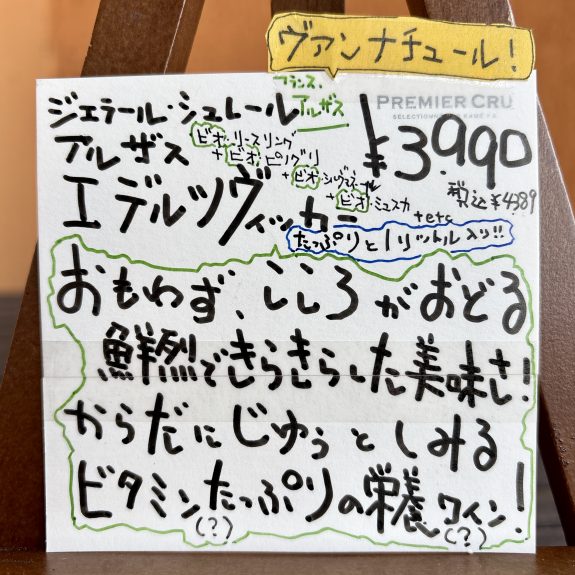 ヴァンナチュール!
フランス、
アルザス
PREMIER CRU
ジェラール・シュレール
アルザス
ビオ・リースリング
+ビオ・ピノグリ
+ビオ・シルヴァネール
+ビオ・ミュスカ
+etc
エデルツヴィッカー
¥3.990
税込¥4389
たっぷりと1リットル入り!!
おもわず、こころがおどる
鮮烈できらきらした美味さ!
からだにじゅぅとしみる
ビタミンたっぷりの栄養ワイン!
(?)
(?)